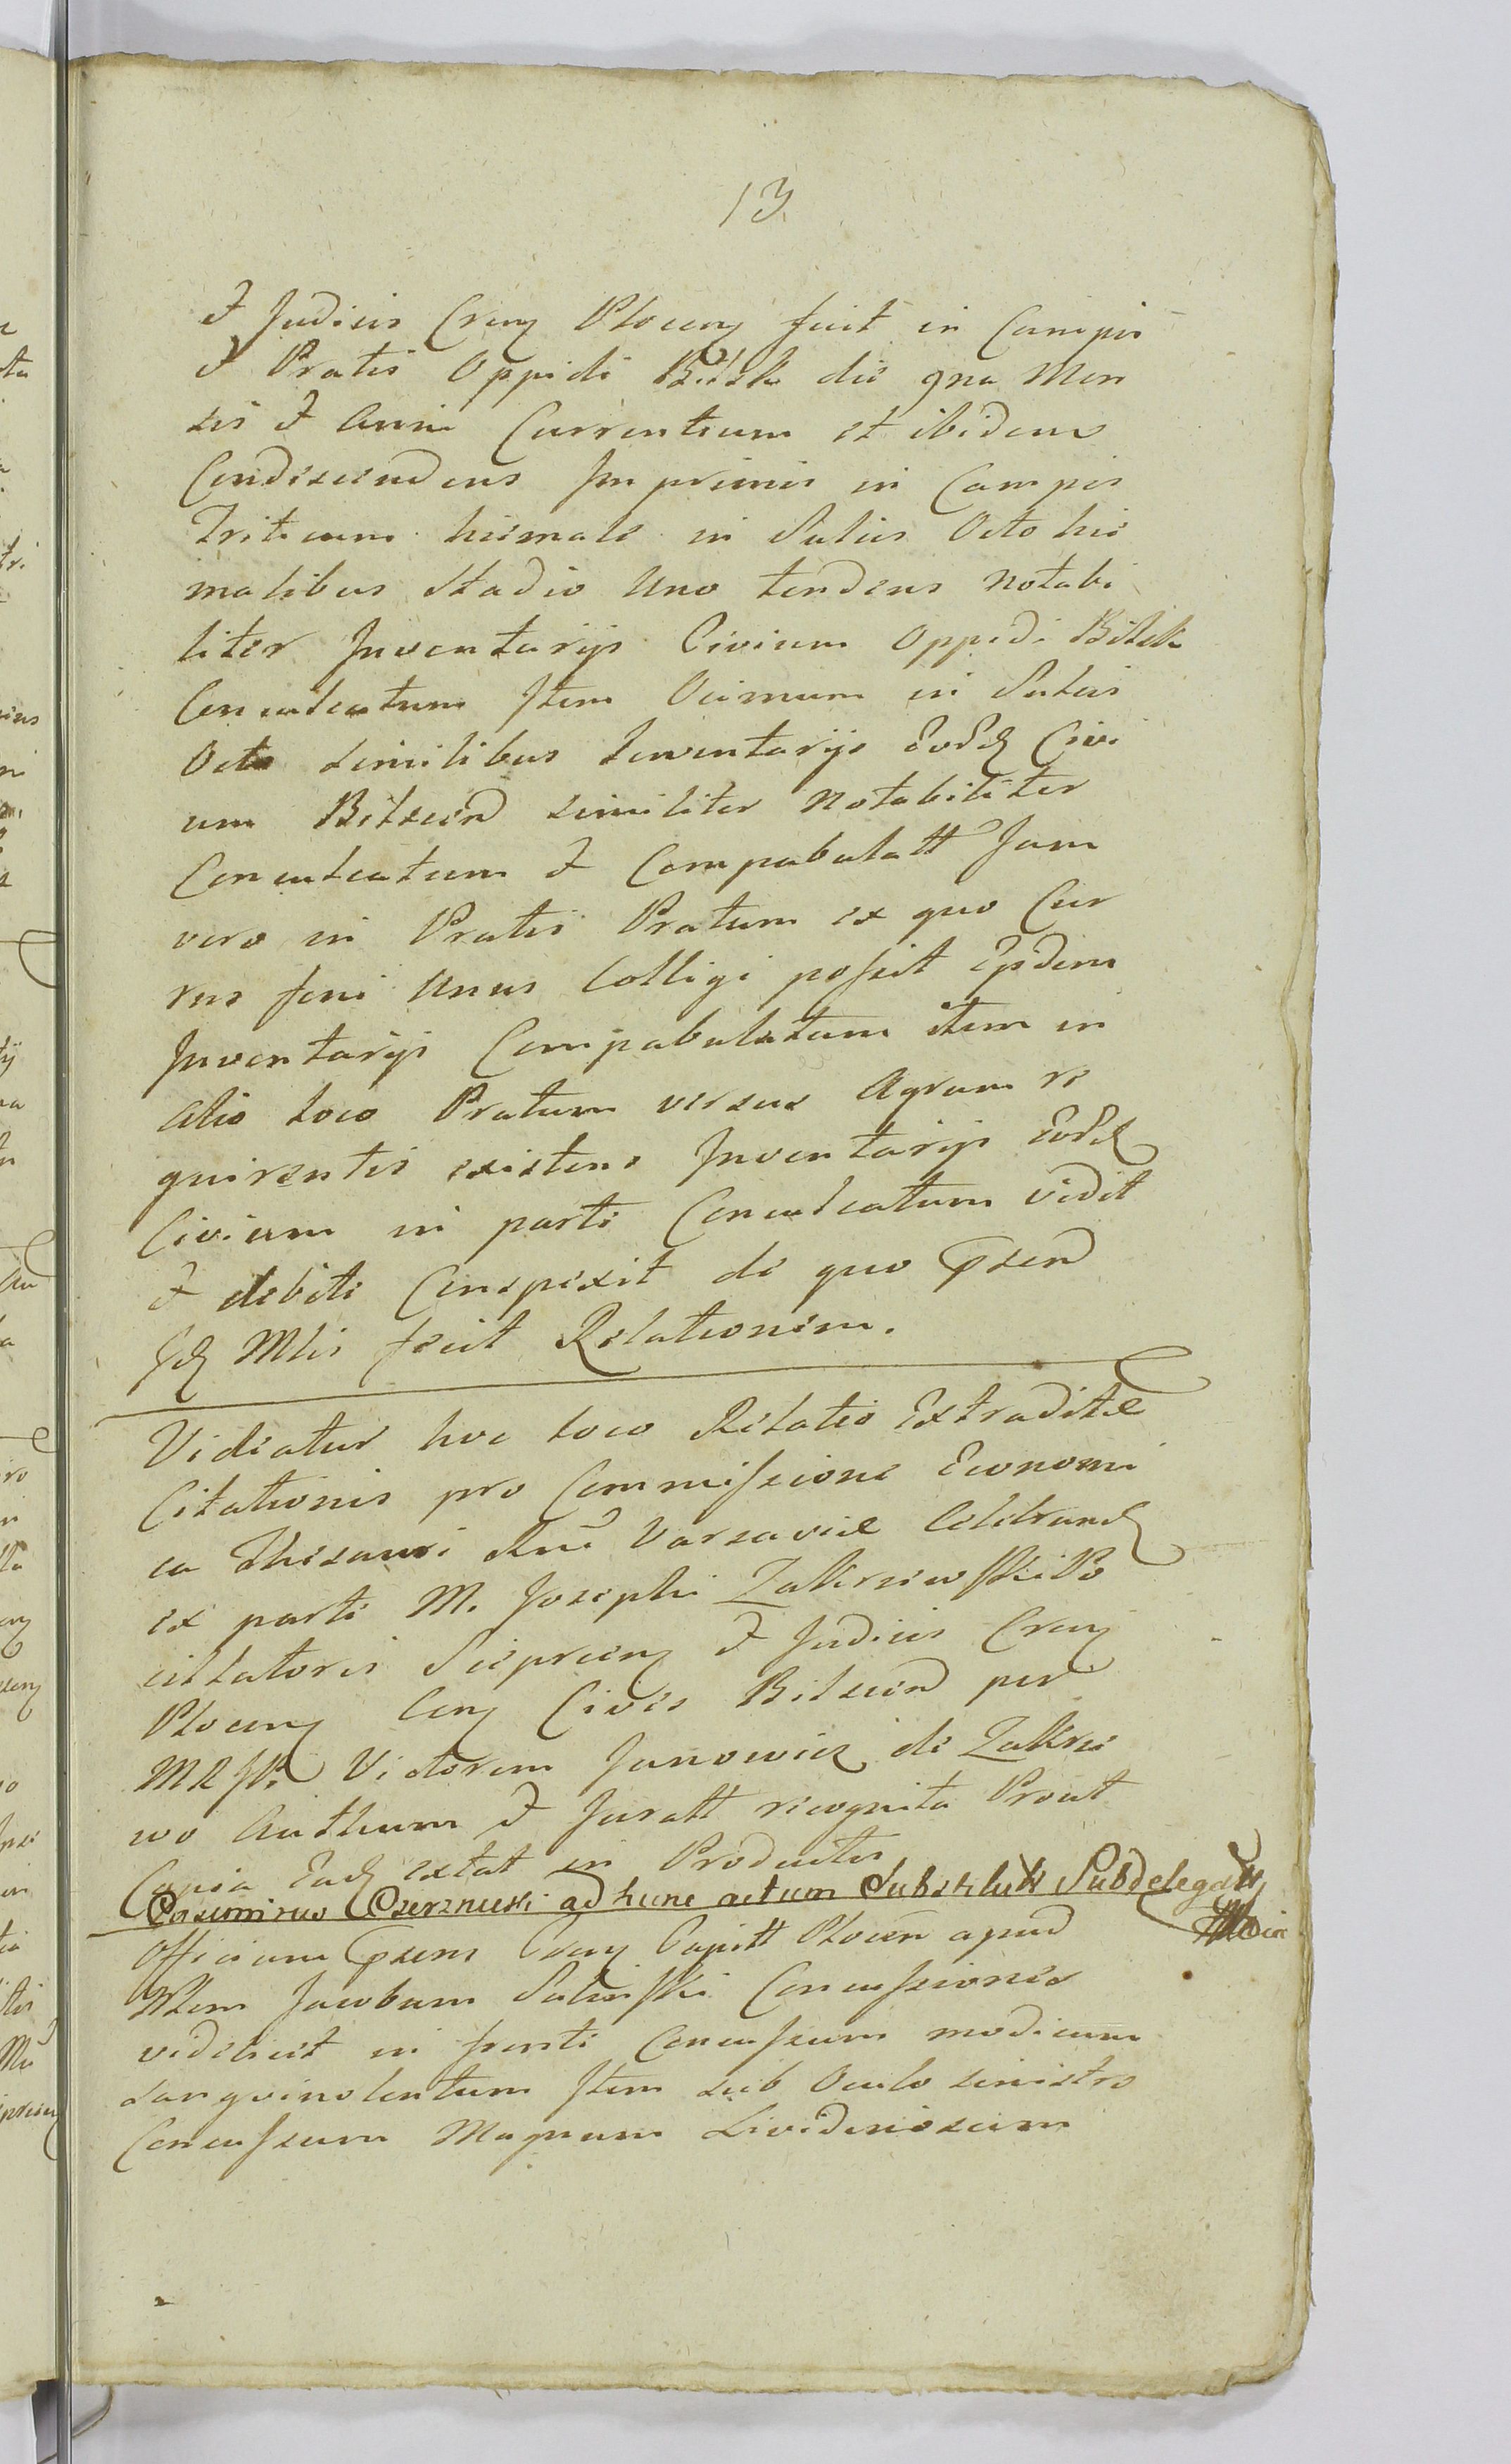 13
& Judicis Cren Plocen fuit in Campis
& Pratis Oppidi Bilsk die 9na Men
sis & Anni Currentium et ibidem
Condescendens Imprimis in Campis
Triticum hiemale in Sulcis Octo hie
malibus Stadio Uno tendens notabi
liter Inventarijs Civium Oppidi Bilsk
Conculcatum Item Ocimum in Sulcis
Octo similibus Inventarijs Eord Civi
um Bilscen similiter notabiliter
Conculcatum & Compabulatt Jam
vero in Pratis Pratum ex quo Cur
rus feni Unus Colligi possit Eisdem
Inventarijs Compabulatum item in
alio loco Pratum versus Agrum re
quirentis existens Inventarijs Eord
Civium in parte Conculcatum vidit
& debite Conspexit de quo Prsen
Sd Mlis fecit Relationem.
Videatur hoc loco Relatio Extraditæ
Citationis pro Commissione Economi
ca Thesauri Rni Varsaviæ Celebrand
ex parte M. Josephi Zakrzewski Po
cillatoris Sieprcen & Judicis Cren
Plocen Con Cives Bilscen per
Victorem Janowicz de Zakrze
wo Authum & Juratt recognita Prout
Copia Ead extat in Productis
Casimirus Czerznicki ad hunc actum Substitutt Subdelegatt
Officium Prsens Cren Capitt Plocen apud
Jacobum Sulinski Concussiones
videlicet in fronte Concussum modicum
sanguinolentum Item sub Oculo sinistro
Concussum Magnum Lividinosum